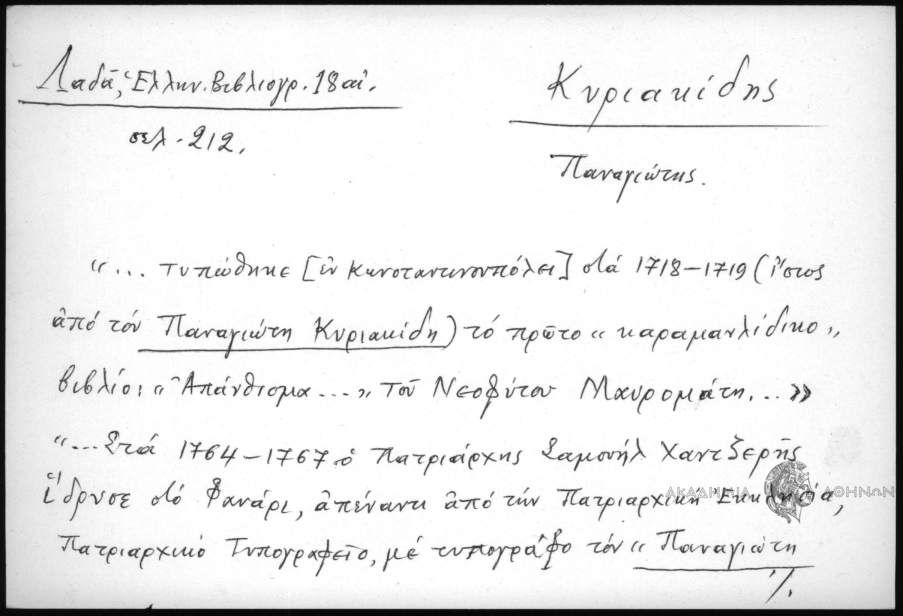 Λαδᾶ, Ἑλλην. Βιβλιογρ. 18 αἰ.
σελ. 212.
Κυριακίδης
Παναγιώτης.
“... τυπώθηκε [ἐν Κωνσταντινουπόλει] στά 1718-1719 (ἴσως
ἀπό τόν Παναγιώτη Κυριακίδη) τό πρῶτο “καραμανλίδικο„
βιβλίο: “Ἀπάνθισμα...„ τοῦ Νεοφύτου Μαυρομάτη...»
“...Στά 1764-1767 ὁ Πατριάρχης Σαμουήλ Χαντζερῆς
ἵδρυσε στό Φανάρι, ἀπέναντι ἀπό τήν Πατριαρχική Ἐκκλησία,
Πατριαρχικό Τυπογραφεῖο, μέ τυπογράφο τόν “Παναγιώτη
./.
ΑΚΑΔΗΜΙΑ ΑΘΗΝΩΝ